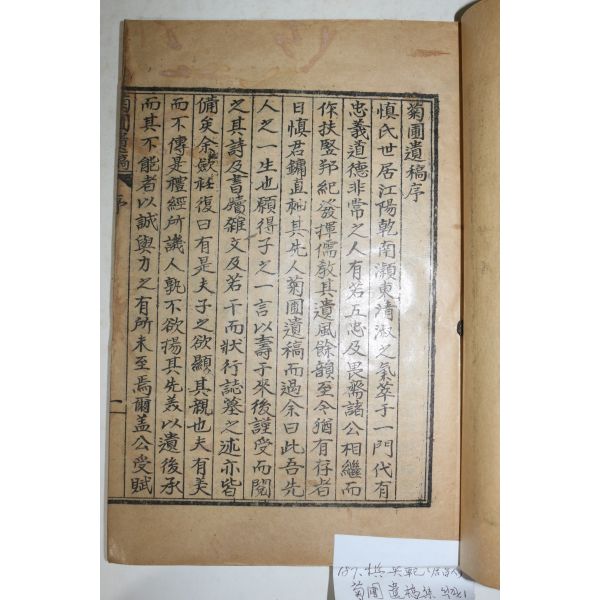 菊圃遺稿序
慎氏世居江陽乾南灝東清淑之氣萃于一門代有
忠義道德非常之人有若五忠及畏齋諸公相繼而
作扶竪邦紀發揮儒教其遺風餘韻至今猶有存者
日慎君鏞直袖其先人菊圃遺稿而過余曰此吾先
人之一生也願得子之一言以壽于來後謹受而閱
之其詩及書牘雜文及若干而狀行誌墓之述亦皆
備矣余歛衽復曰有是夫子之欲顯其親也夫有美
而不傳是禮經所譏人孰不欲揚其先美以遺後承
而其不能者以誠與力之有所未至焉爾盖公受賦
菊圃遺稿 序 一
菊圃遺稿